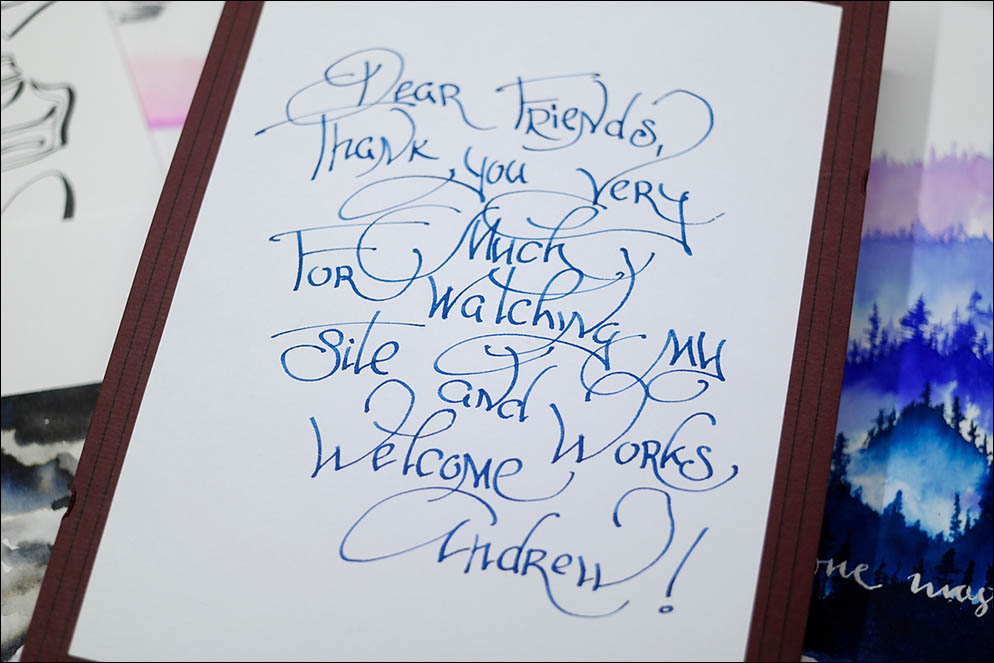 Dear Friends,
Thank you very
Much
For Watching my
Site and Works
Welcome
Andrew!
one mos